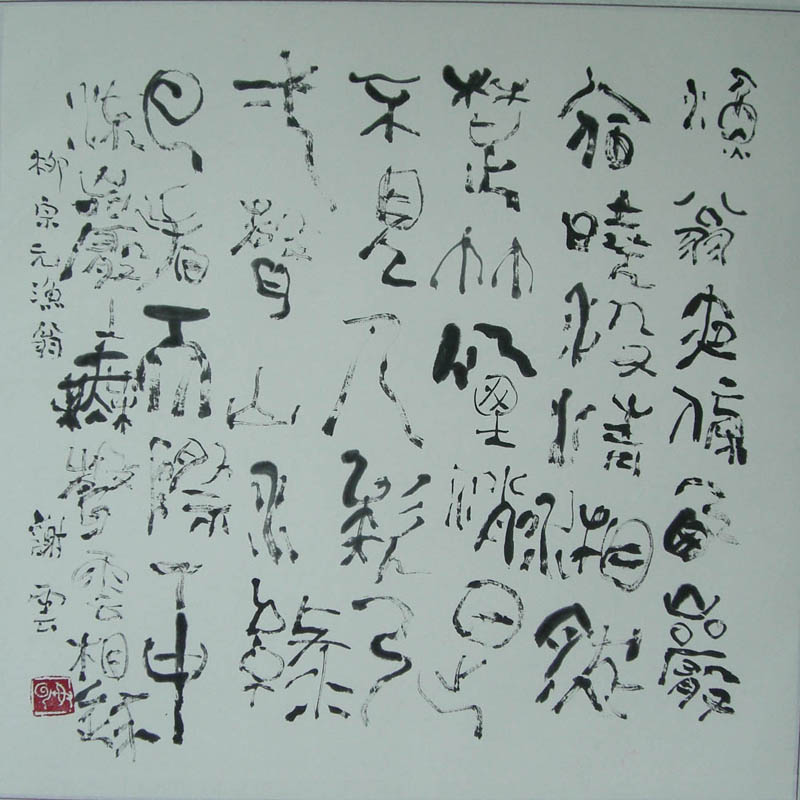 漁翁夜傍西巖
宿曉汲清湘然
楚竹煙銷日出
不見人欸乃
弌聲山水綠
回看天際下中
流巖上無心雲相逐
柳宗元漁翁 謝雲